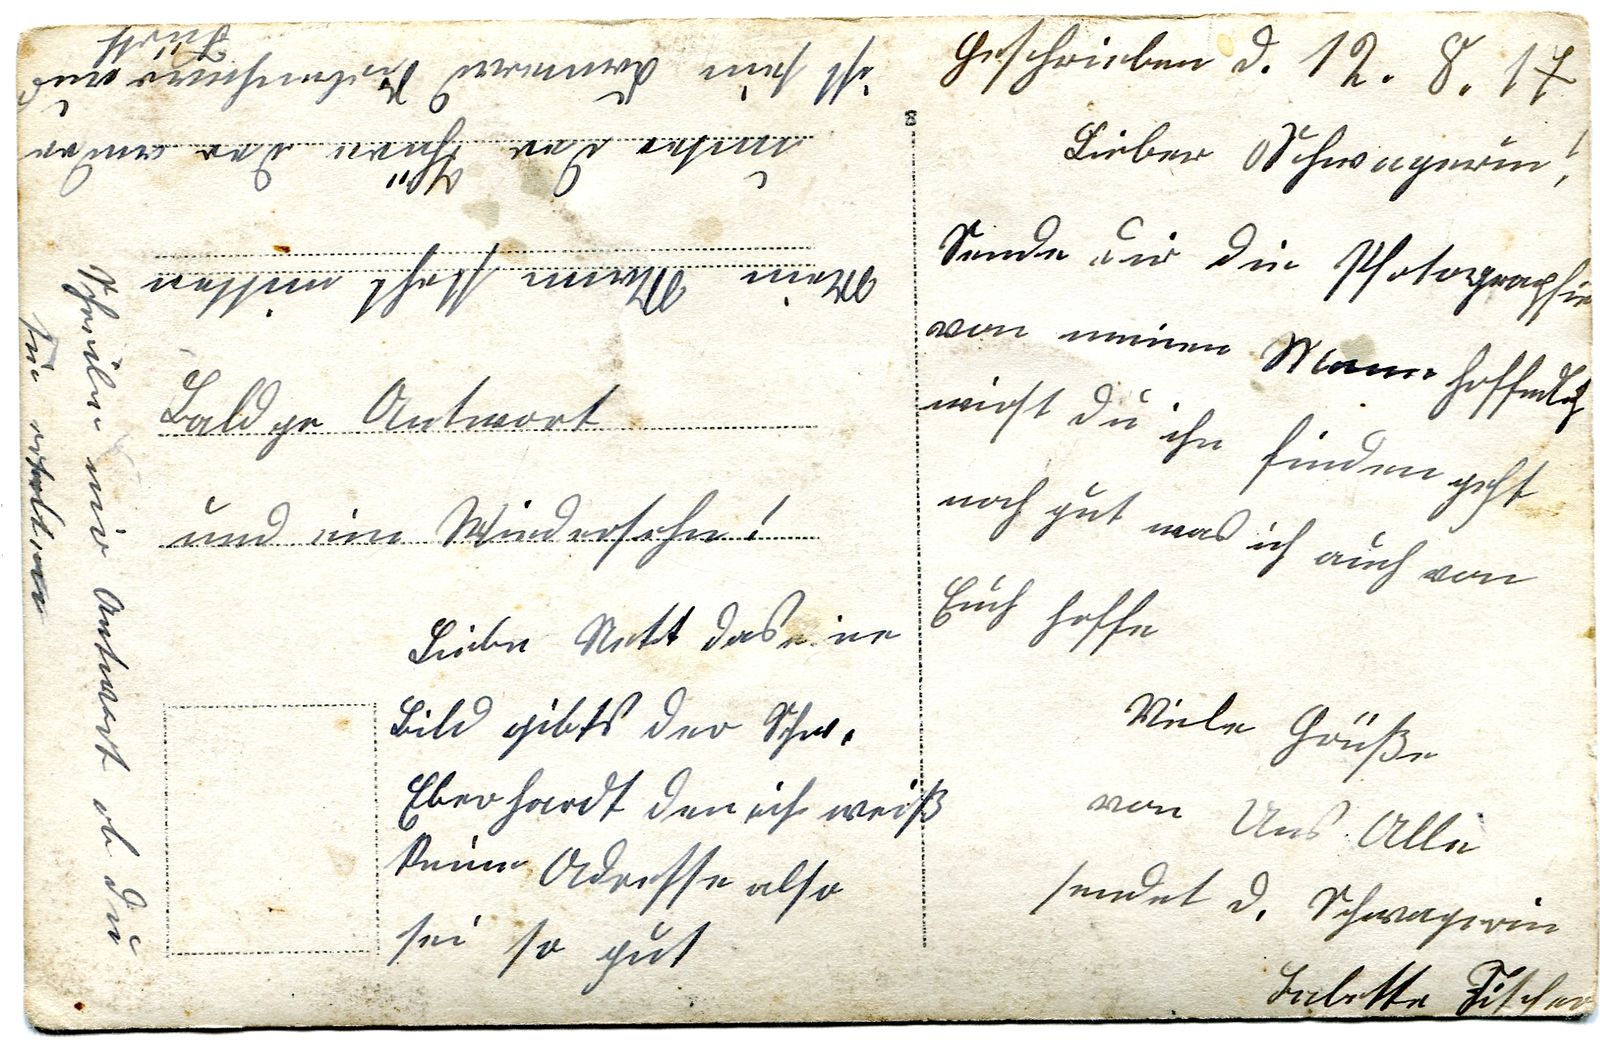 Geschrieben d. 12. 8. 17
Lieber Schwagerin!
Sende dir die Photographie
von meinen Mann hoffendlich
wirst du ihn finden geht
noch gut was ich auch von
Euch hoffe
Viele Grüße
von Uns Alle
sendet d. Schwagerin
Babette Fischer
Baldge Antwort
und ein Wiedersehn!
Liebe Nett das eine
Bild gibts der Schw.
Eberhardt den ich weiß
keine Adresse also
sei so gut
Mein Mann steht mitten
unter der Thüre der andre
ist sein Kamerad
Fürth
Schreibe mir Antwort ob du
sie erhalten